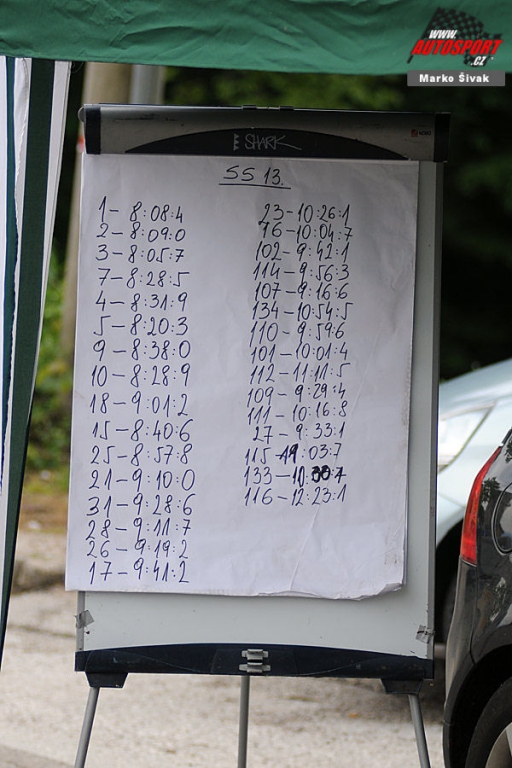 www.
AUTOSPORT
.CZ
Marko Šivak
SHARK
SS 13.
1 - 8:08:4
2 - 8:09:0
3 - 8:05:7
7 - 8:28:5
4 - 8:31:9
5 - 8:20:3
9 - 8:38:0
10 - 8:28:9
18 - 9:01:2
15 - 8:40:6
25 - 8:57:8
21 - 9:10:0
31 - 9:28:6
28 - 9:11:7
26 - 9:19:2
17 - 9:41:2
23 - 10:26:1
76 - 10:04:7
102 - 9:42:1
114 - 9:56:3
107 - 9:16:6
134 - 10:54:5
110 - 9:59:6
101 - 10:01:4
112 - 11:11:5
109 - 9:29:4
111 - 10:16:8
27 - 9:33:1
115 - :03:7
133 - 10
116 - 12:23:1